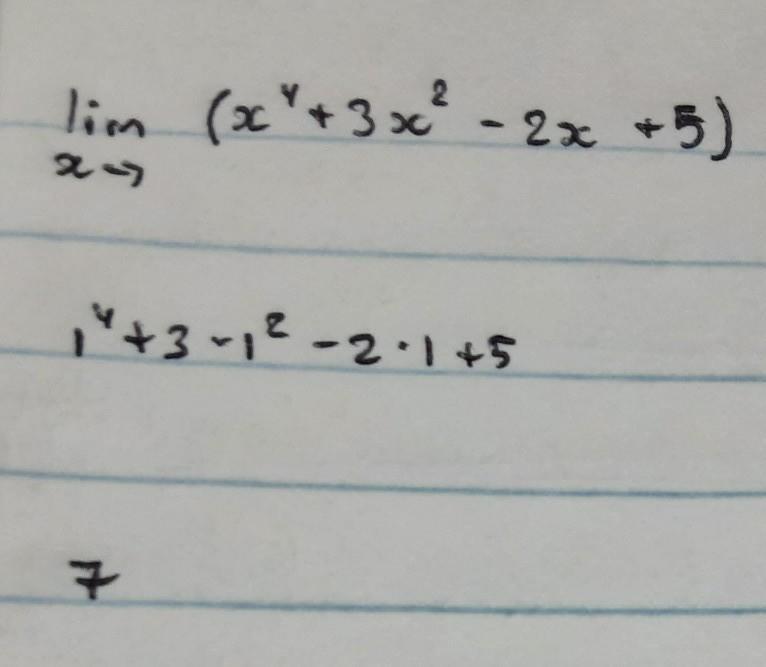 lim (x⁴ + 3x² - 2x + 5)
x→
1⁴ + 3 · 1² - 2 · 1 + 5
7